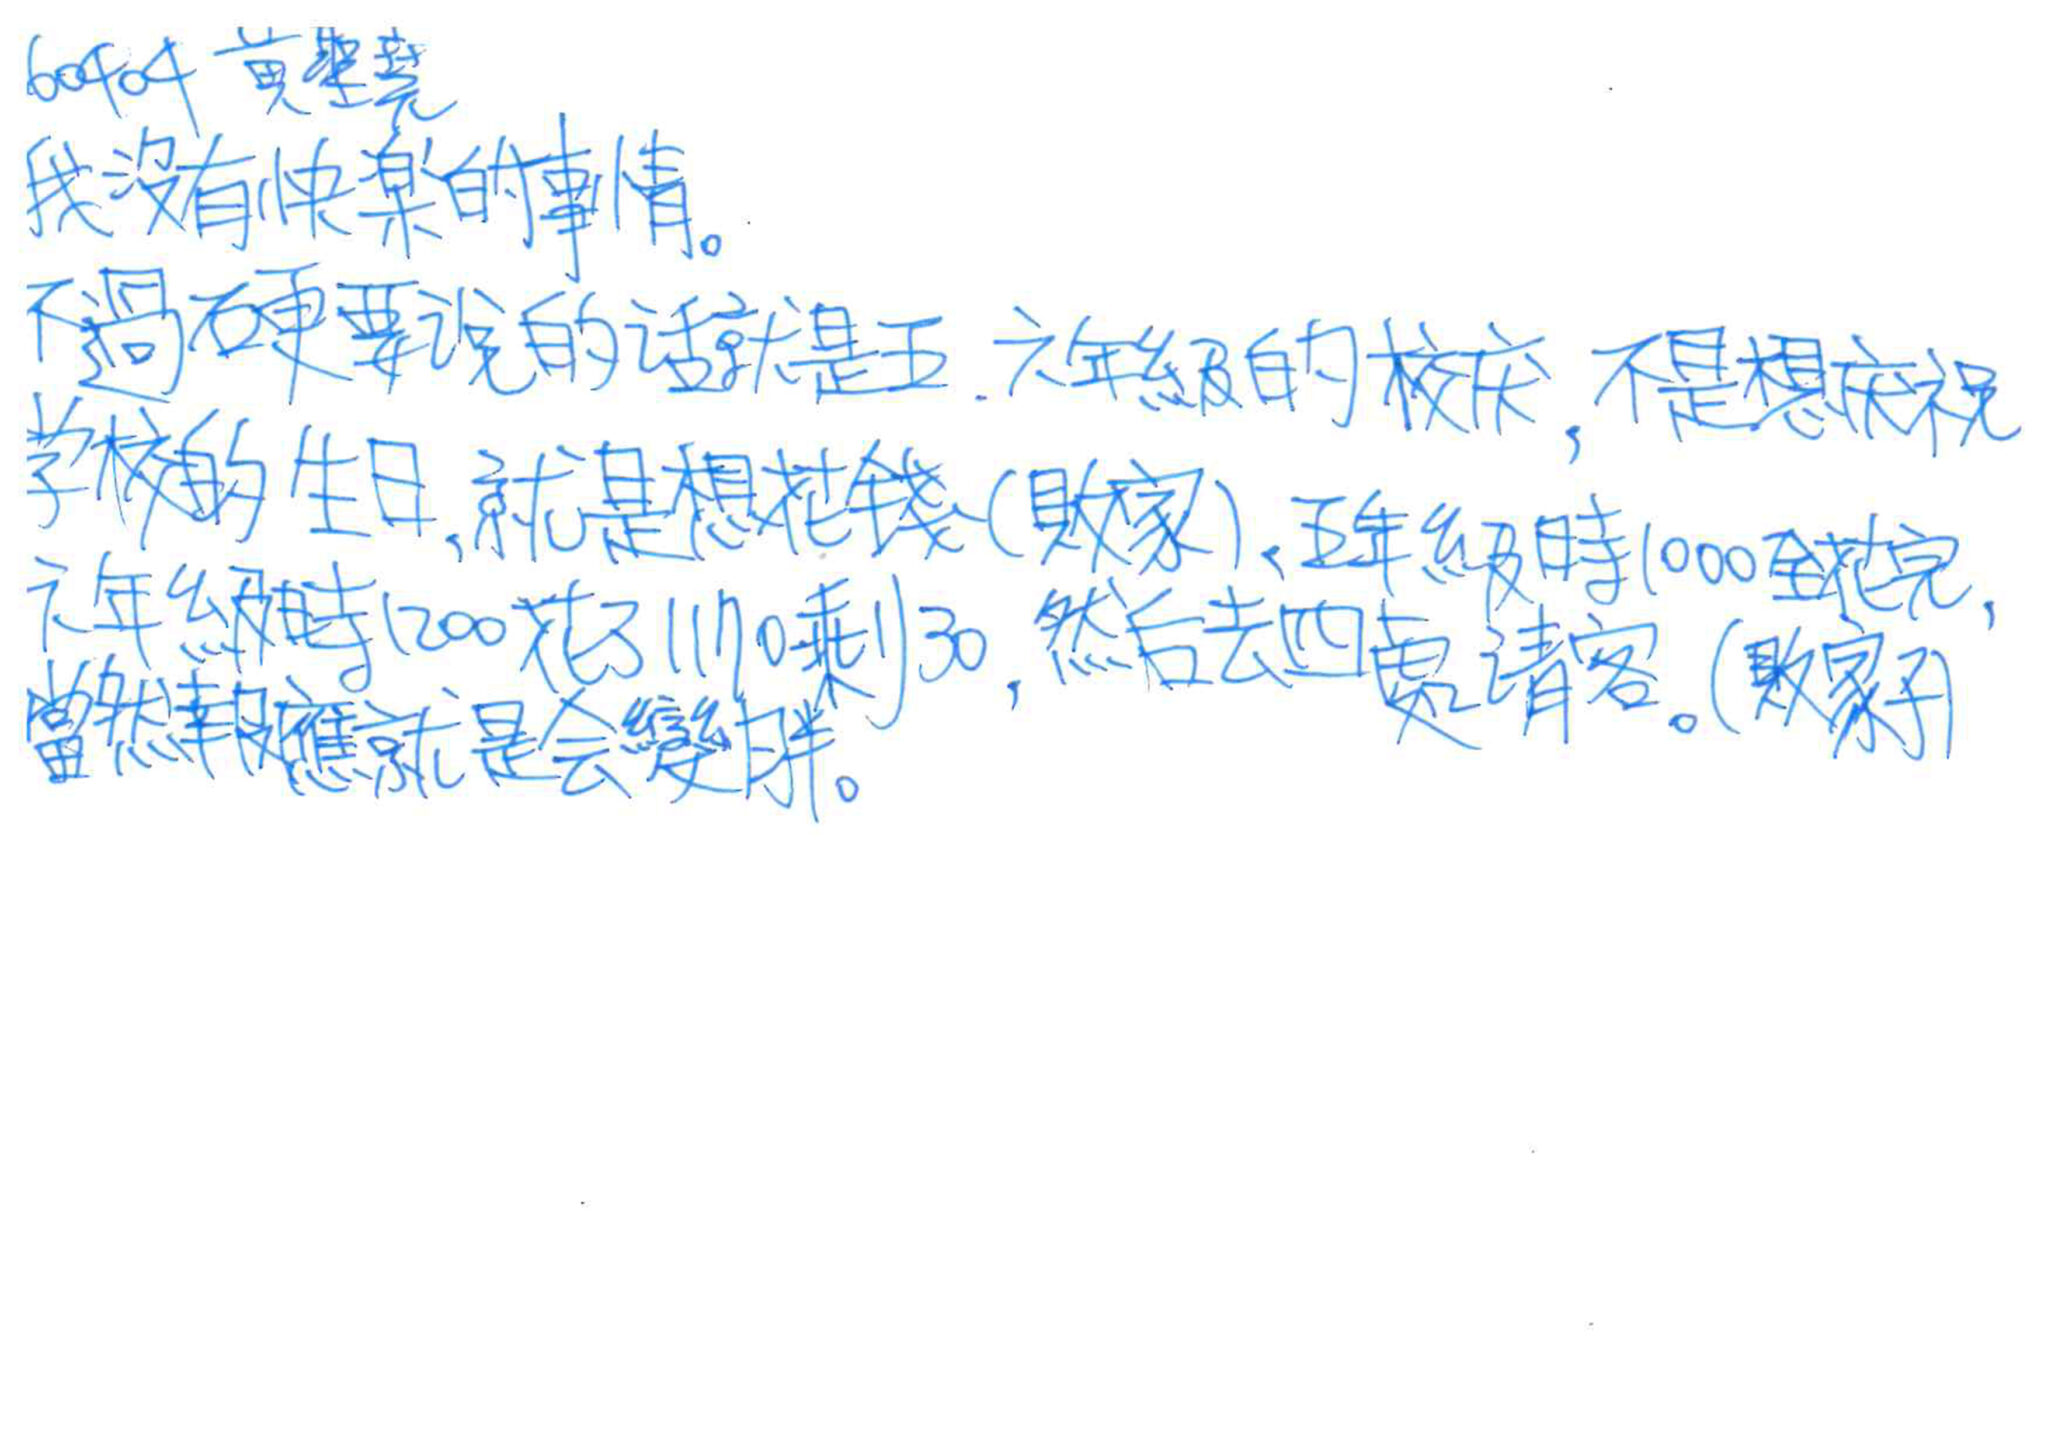 60404 黃聖堯
我沒有快楽的事情。
不過硬要说的话就是五、六年級的校庆,不是想庆祝
学校的生日,就是想花錢(敗家)、五年級時1000全花完,
六年級時1200花了1170剩30,然后去四處请客。(敗家子)
當然報應就是会變胖。